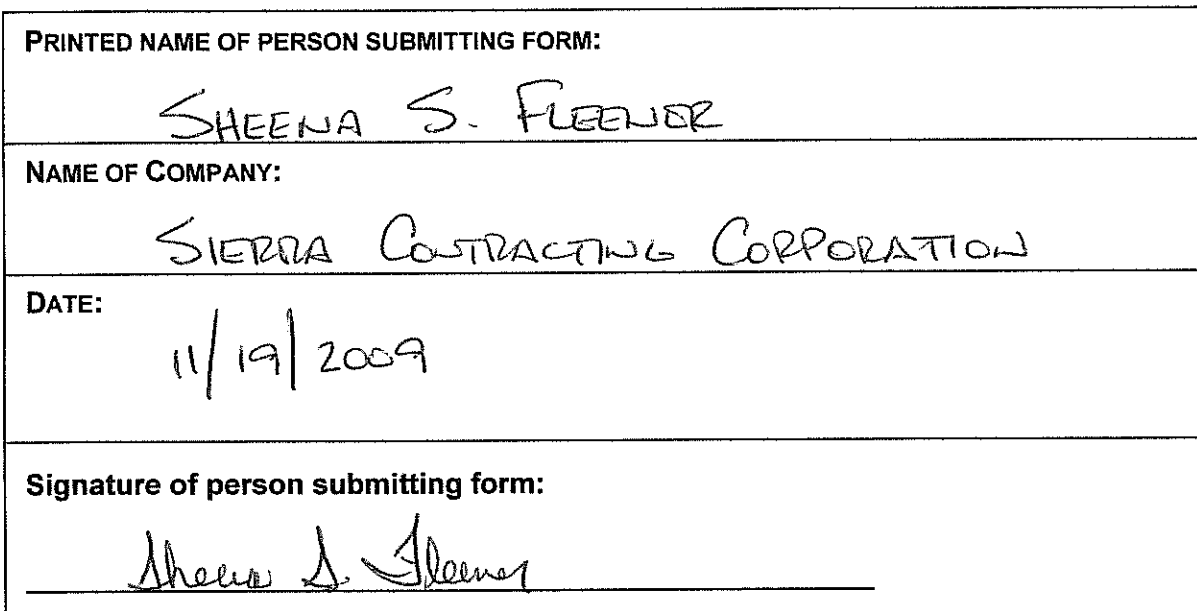 PRINTED NAME OF PERSON SUBMITTING FORM:
SHEENA S. FLEENER
NAME OF COMPANY:
SIERRA CONTRACTING CORPORATION
DATE:
11/19/2009
Signature of person submitting form:
Sheena S. Fleener